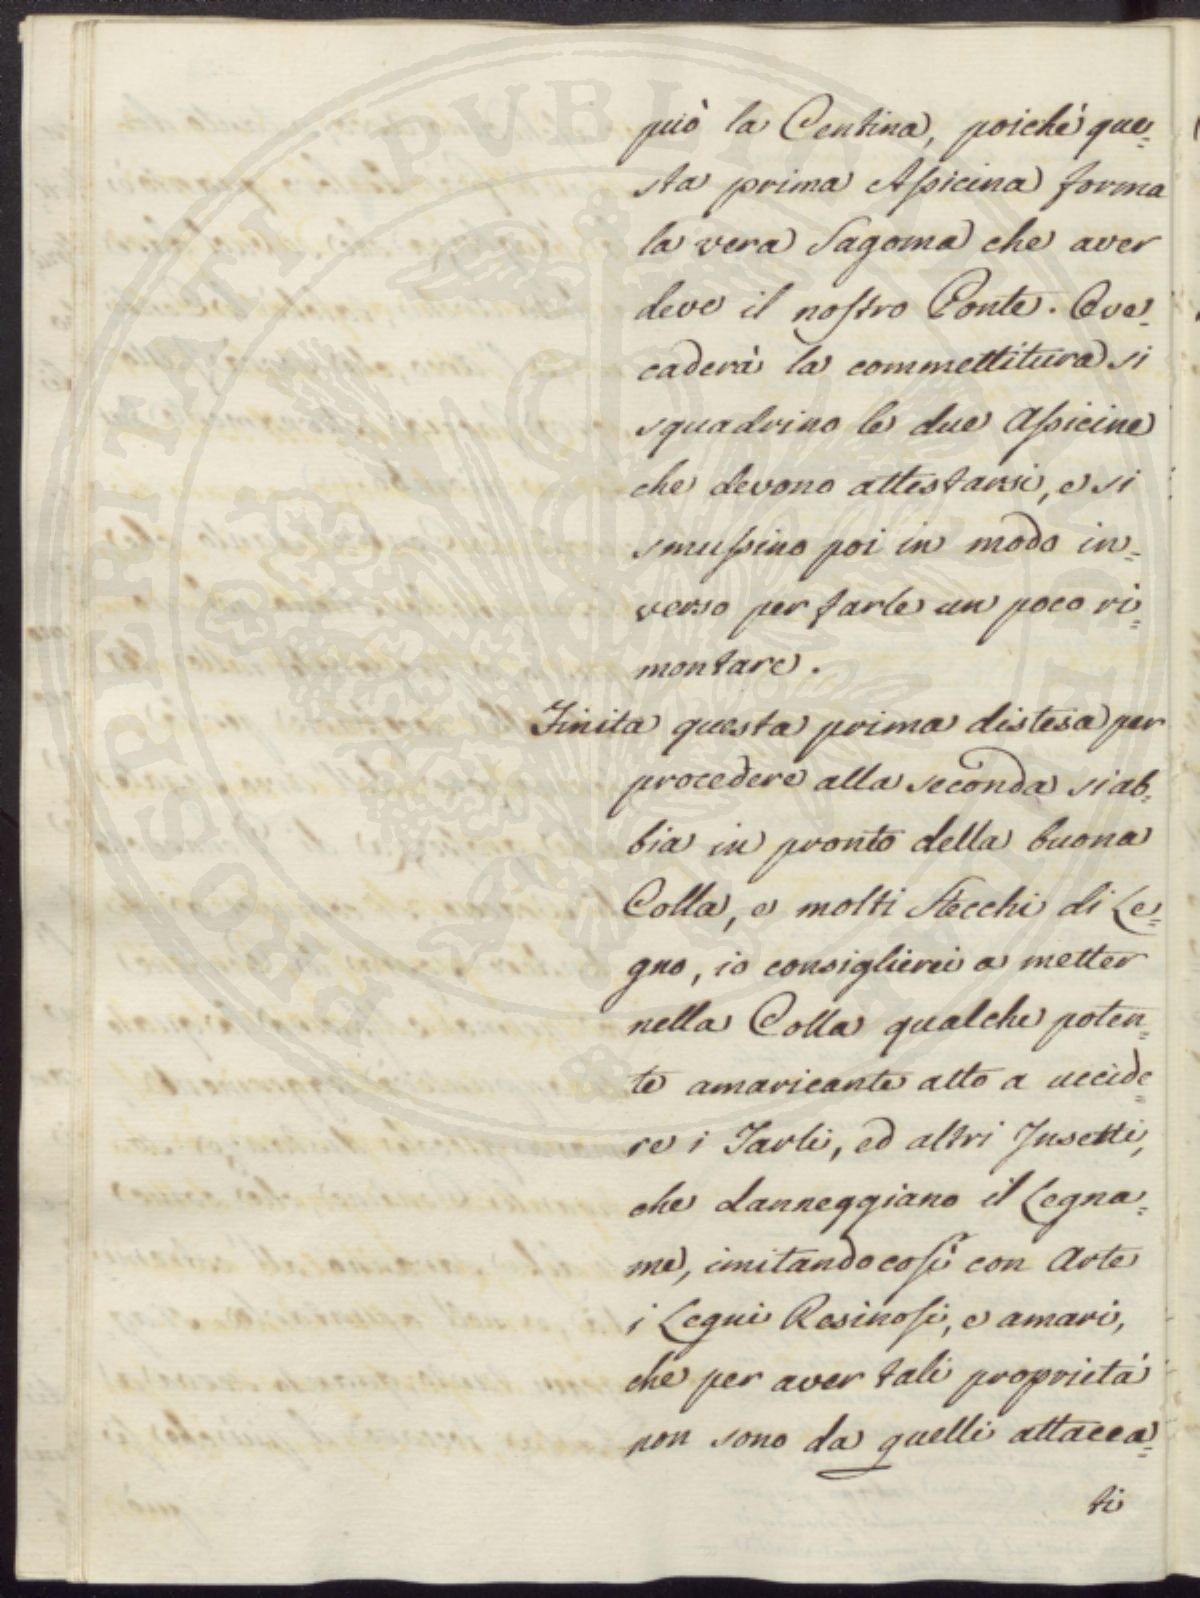 può la Centina, poichè que=
sta prima Assicina forma
la vera Sagoma che aver
deve il nostro Ponte. Ove
caderà la commettitura si
squadrino le due Assicine
che devono attestarsi, e si
smussino poi in modo in=
verso per farle un poco ri=
montare.
Finita questa prima distesa per
procedere alla seconda si ab=
bia in pronto della buona
Colla, e molti Stecchi di Le=
gno, io consiglierei a metter
nella Colla qualche poten=
te amaricante atto a uccide=
re i Tarli, ed altri Insetti,
che danneggiano il Legna=
me, imitando così con Arte
i Legni Resinosi, e amari,
che per aver tali proprietà
non sono da quelli attacca=
ti
PROSPERITATI PVBLICAE